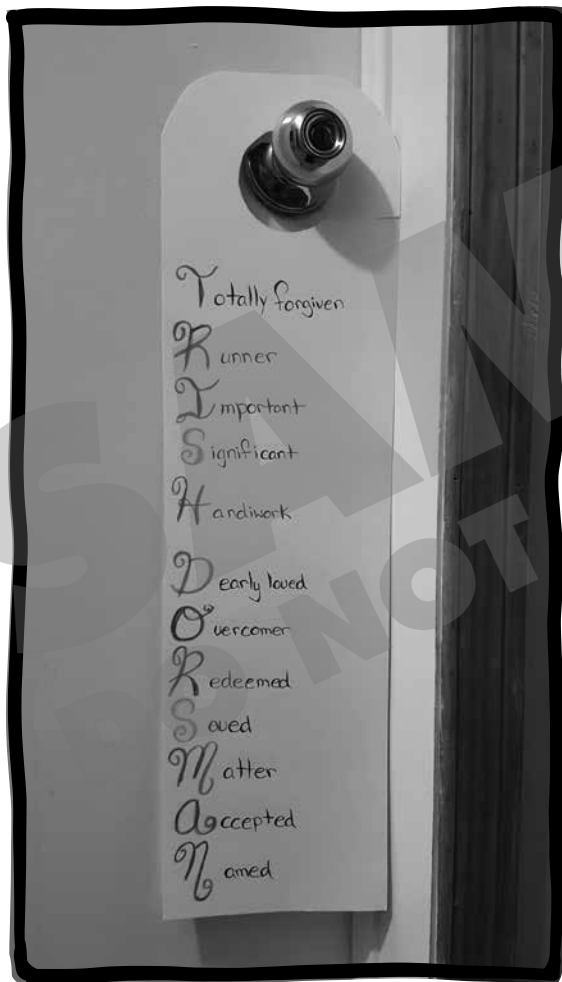 Totally forgiven
Runner
Important
Significant
Handiwork
Dearly loved
Overcomer
Redeemed
Saved
Matter
Accepted
Named
SAM
DO NOT